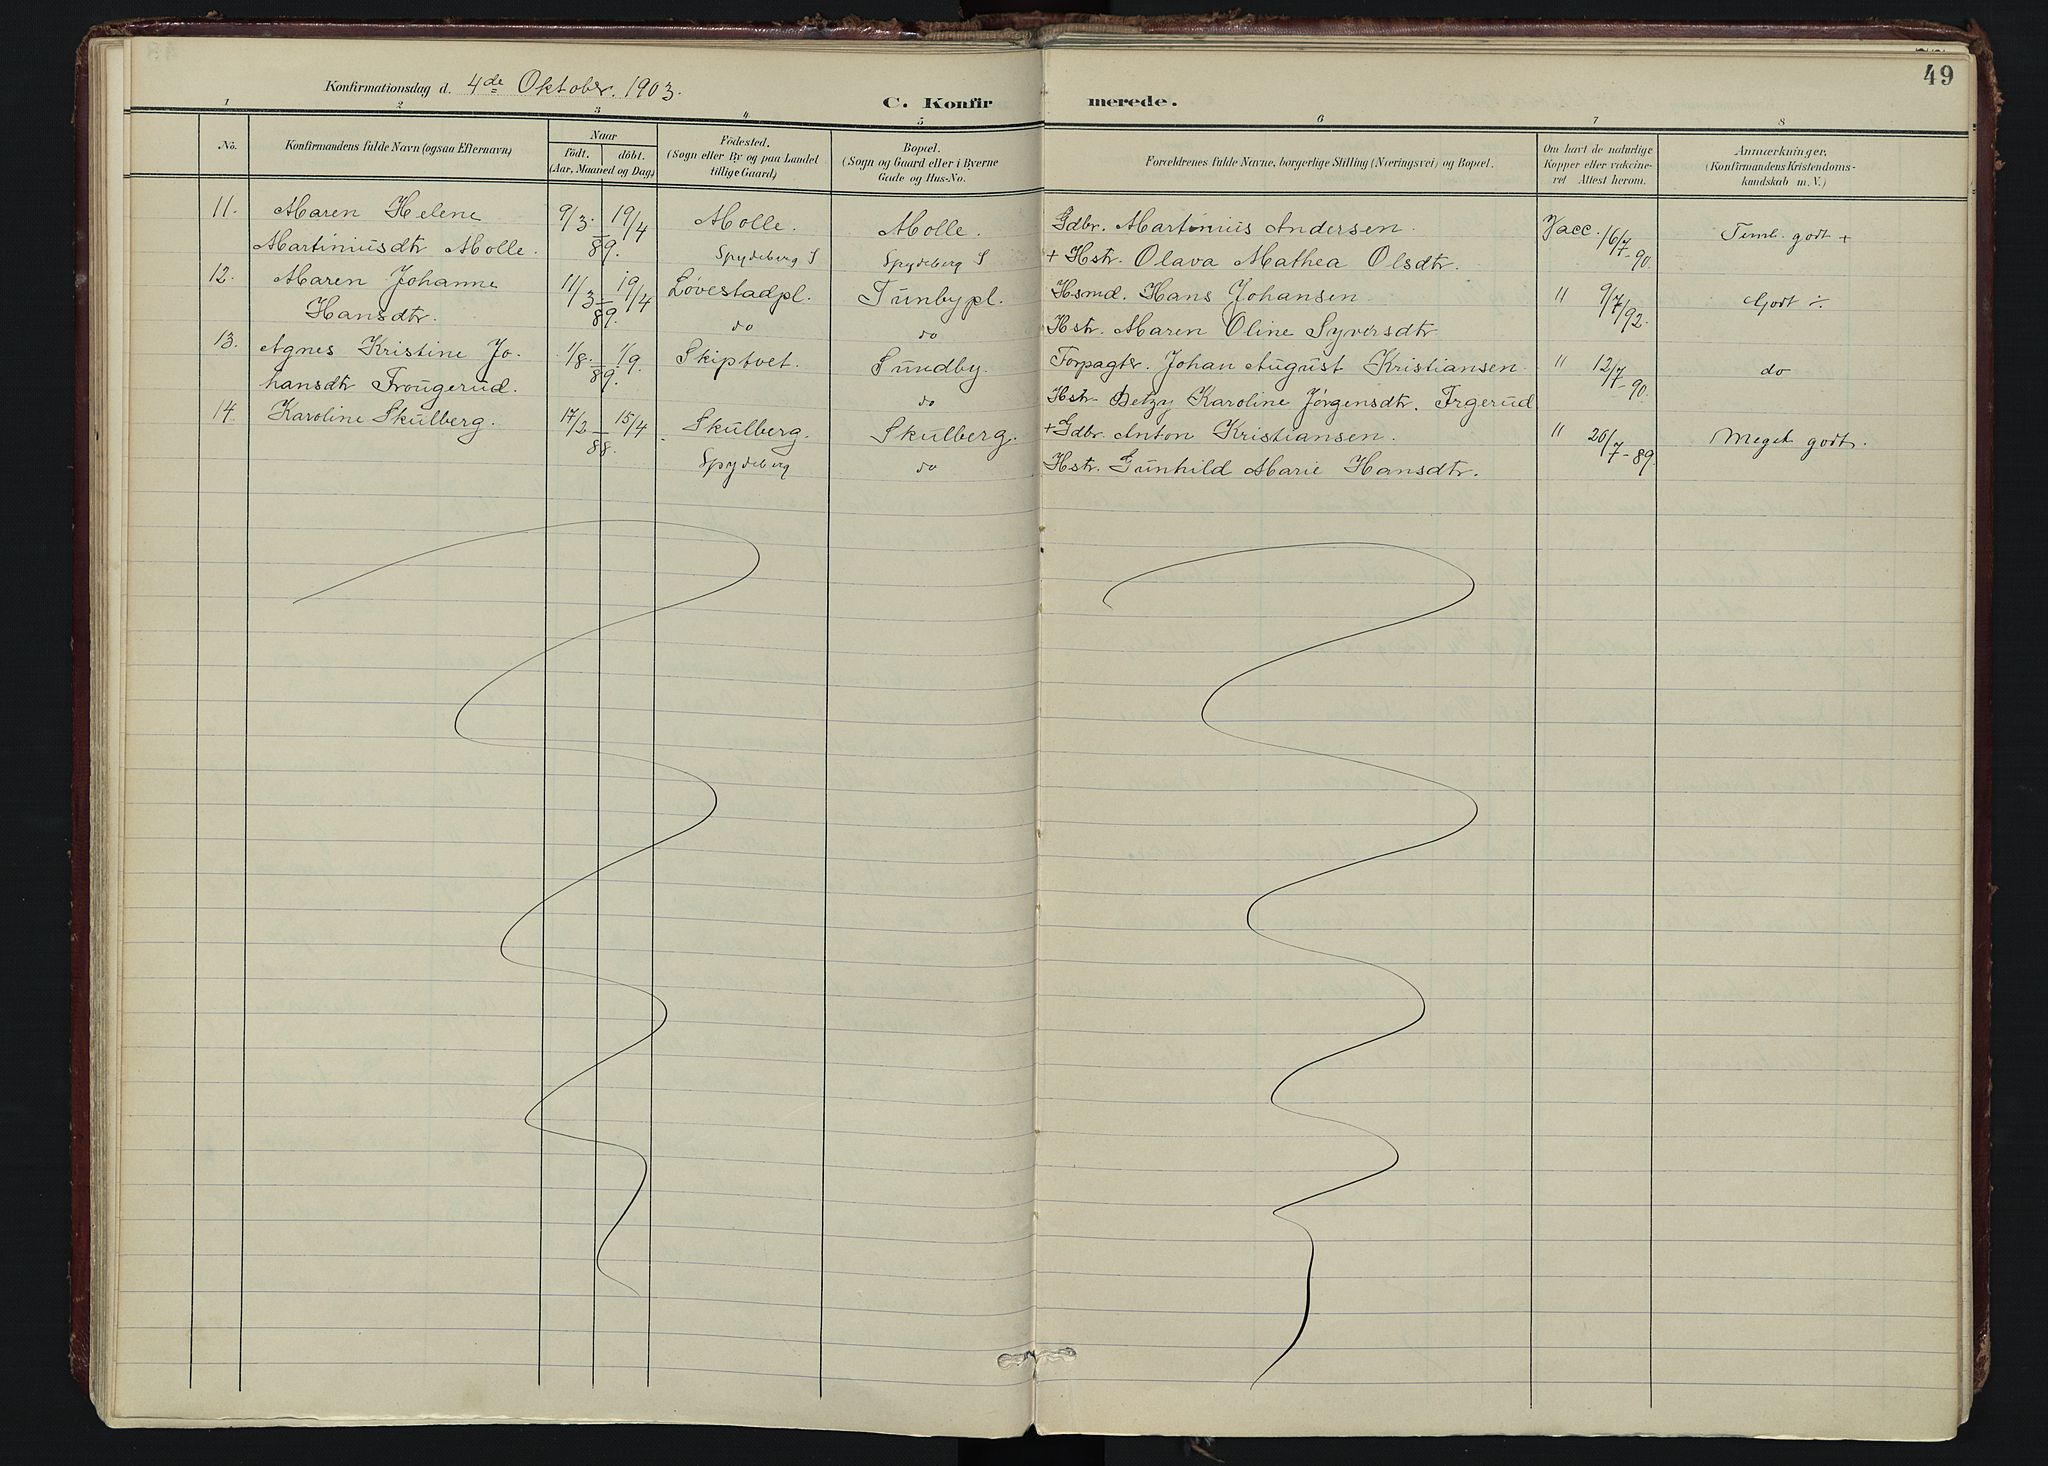 49
Konfirmationsdag d. 4de Oktober. 1903.
C. Konfirmerede.
1 2 3 4 5 6 7 8
No.
Konfirmandens fulde Navn (ogsaa Efternavn)
Naar
födt. döbt.
(Aar, Maaned og Dag)
Födested.
(Sogn eller By og paa Landet
tillige Gaard)
Bopæl.
(Sogn og Gaard eller i Byerne
Gade og Hus-No.
Forældrenes fulde Navne, borgerlige Stilling (Næringsvei) og Bopæl.
Om havt de naturlige
Kopper eller vakcine-
ret Attest herom.
Anmærkninger,
(Konfirmandens Kristendoms-
kundskab m. V.)
11. Maren Helene 9/3. 19/4 Molle. Molle. Gdbr. Martinius Andersen. Vacc. 16/7-90. Teml. godt +
Martiniusdtr Molle. 89. Spydeberg S Spydeberg S + Hstr. Olava Mathea Olsdtr.
12. Maren Johanne 11/3 19/4 Løvestadpl. Tunbypl. Hsmd. Hans Johansen " 9/7/92. Godt ÷
Hansdtr. 89. do do Hstr. Maren Oline Syversdtr
13. Agnes Kristine Jo- 1/8. 1/9. Skiptvet. Sundby. Forpagter. Johan August Kristiansen " 12/7-90. do
hansdtr Frougerud. 89. do Hstr. Betzy Karoline Jørgensdtr. Frgerud
14. Karoline Skulberg. 17/2 15/4 Skulberg. Skulberg. + Gdbr. Anton Kristiansen. " 26/7-89. Meget godt.
88. Spydeberg do Hstr. Gunhild Marie Hansdtr.